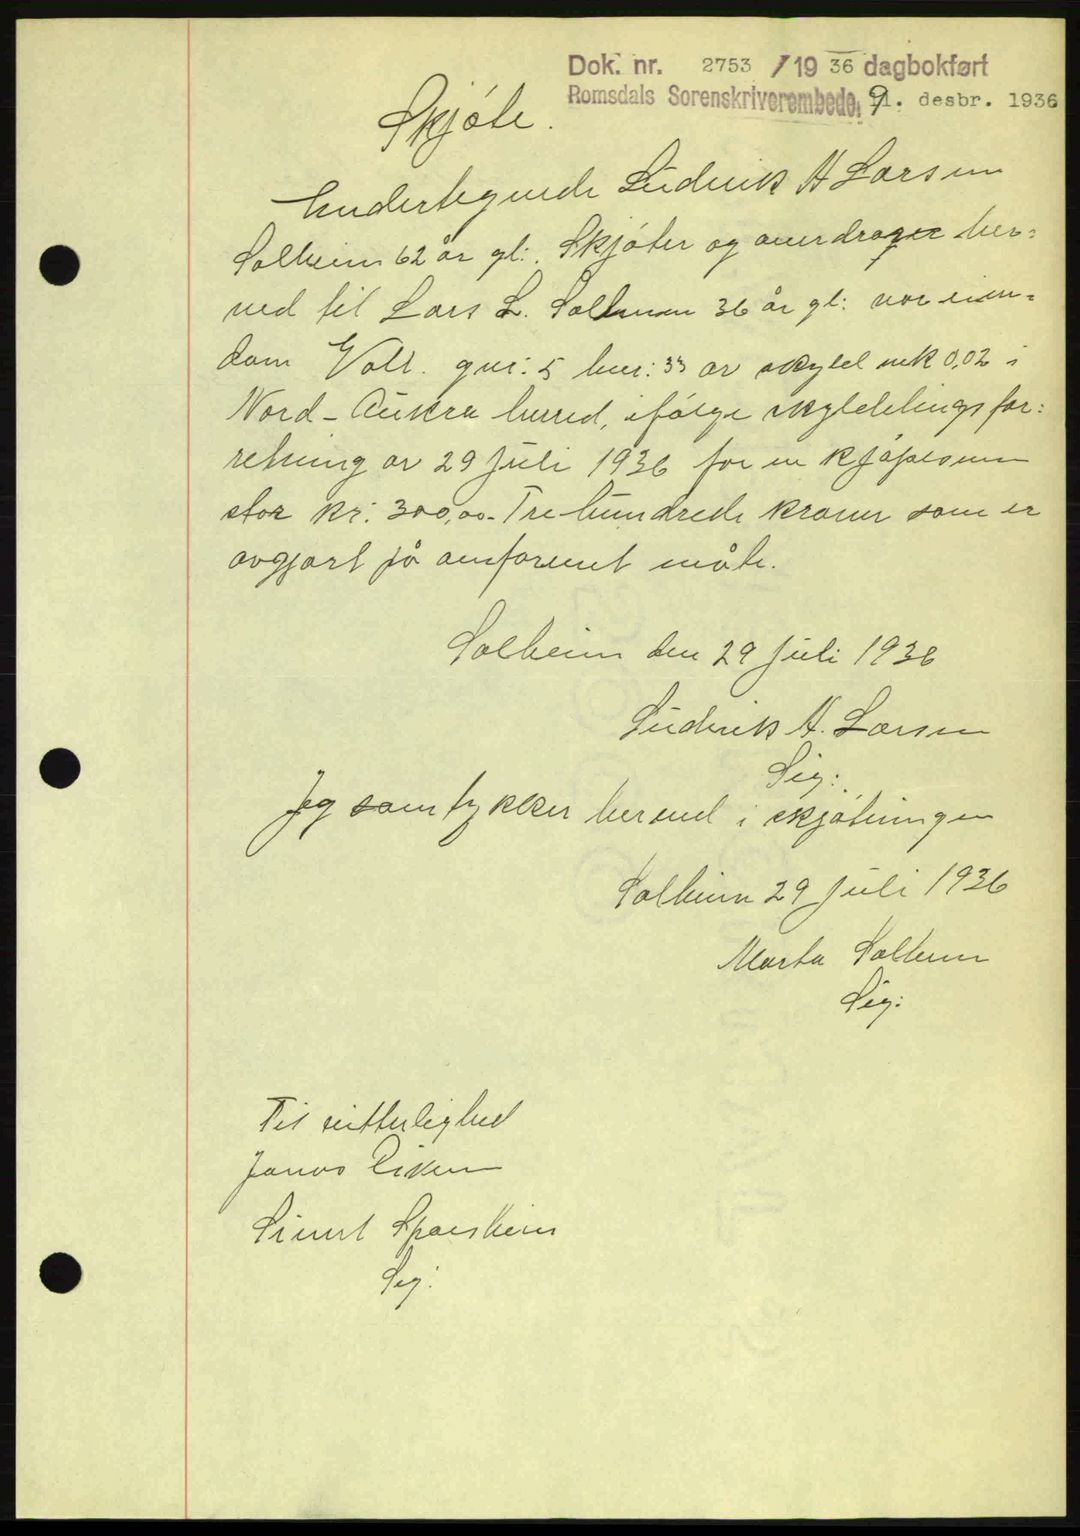 Dok. nr. 2753 / 19 36 dagbokført
Romsdals Sorenskriverembede, 9. desbr. 1936
Skjøte.
Undertegnede Ludvik H Larsen
Solheim 62 år gl:. Skjøter og overdrager her=
ved til Lars L. Solheim 36 år gl: vor eien=
dom Voll. gnr: 5 bnr: 33 av skyld mk 0,02 i
Nord-Aukra herred, ifølge skylddelingsfor:
retning av 29 juli 1936 for en kjøpesum
stor kr: 300,00- Trehundrede kroner som er
avgjort på omforenet måte.
Solheim den 29 juli 1936
Ludvik H. Larsen
Sig:
Jeg samtykker herved i skjøtningen
Solheim 29 juli 1936
Marta Solheim
Sig:
Til vitterlighed
Jonas
Sivert
Sig: